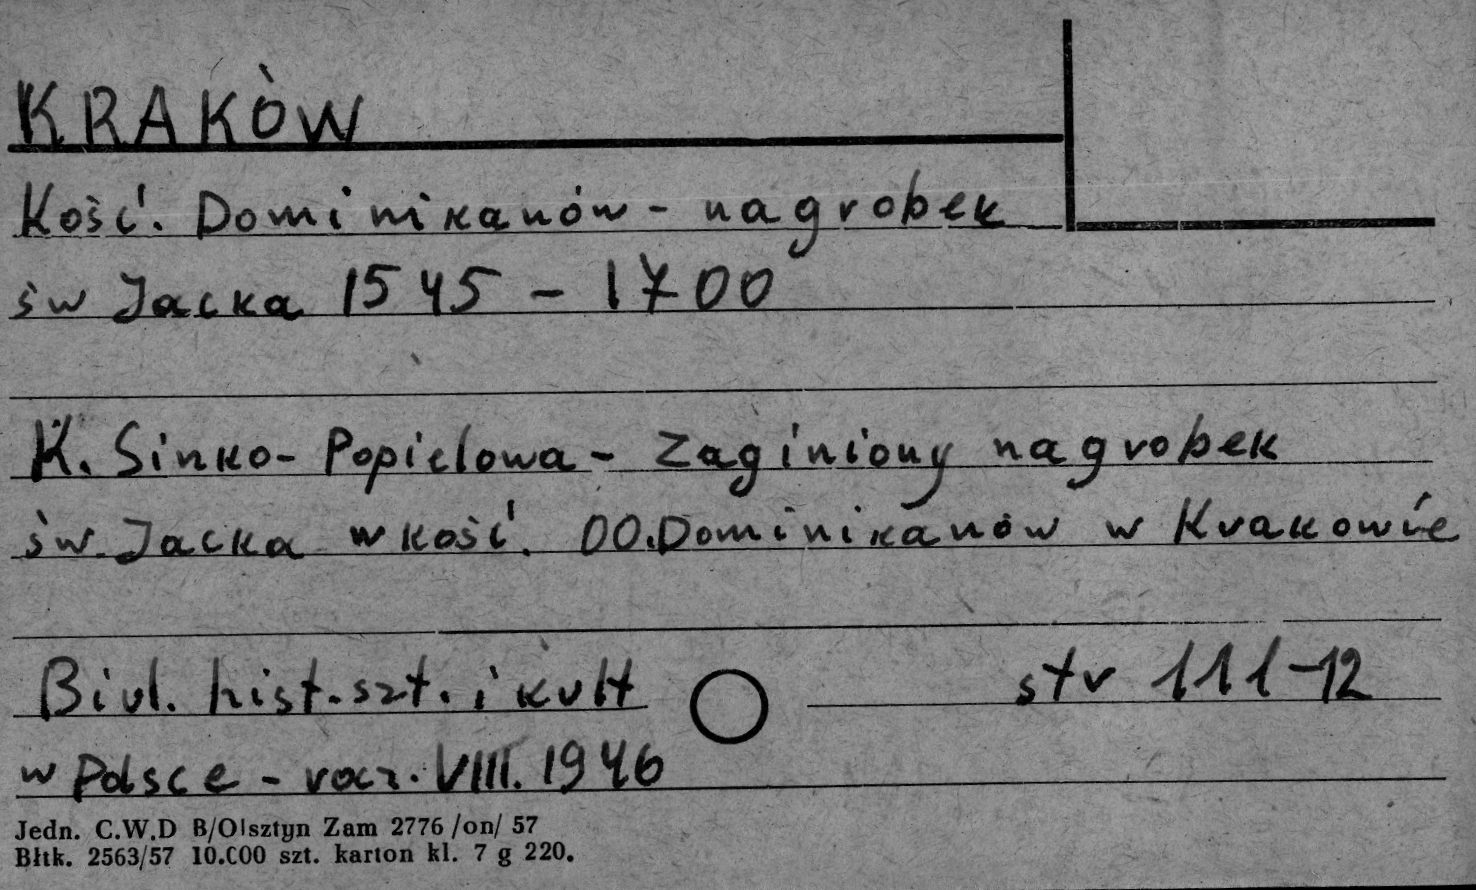 KRAKÒW
Kość. Dominikanów - nagrobek
św Jacka 1545 - 1700
K. Sinko-Popielowa - Zaginiony nagrobek
św. Jacka w kość. OO. Dominikanów w Krakowie
Biul. hist. szt. i kult str 111-12
w Polsce - rocz. VIII. 1946
Jedn. C.W.D B/Olsztyn Zam 2776 /on/ 57
Błtk. 2563/57 10.000 szt. karton kl. 7 g 220.